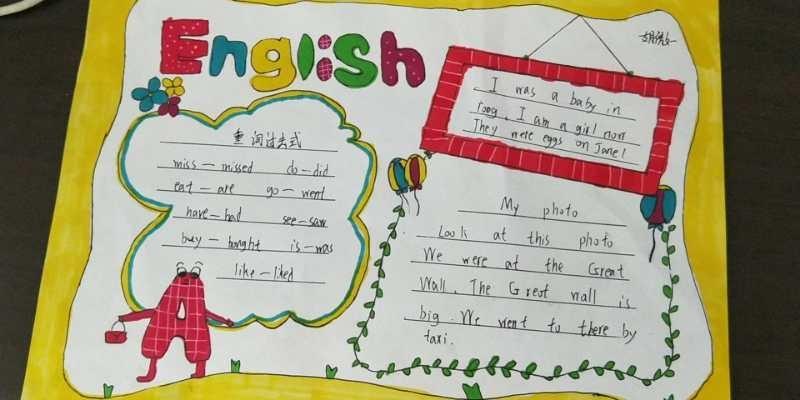 English
I was a baby in
I am a girl now
They were eggs on June 1
重词过去式
miss—missed do—did
eat—are go—went
have—had see—saw
buy—bought is—was
like—liked
My photo
Look at this photo
We were at the Great
Wall. The Great wall is
big. We went to there by
taxi.